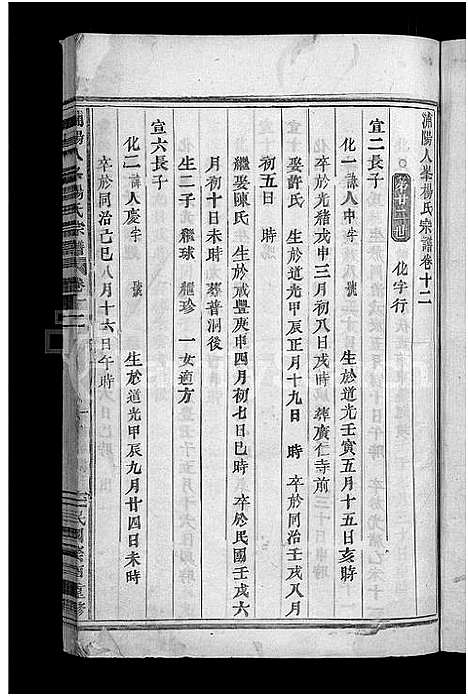 浦陽人峯楊氏宗譜卷十二
第廿三世 化字行
宣二長子
化一 諱人申 字 號 生於道光壬寅五月十五日亥時
卒於光緒戊申三月初八日戌時 葬廣仁寺前
娶許氏 生於道光甲辰正月十九日 時 卒於同治壬戌八月
初五日 時
繼娶陳氏 生於咸豐庚申四月初七日巳時 卒於民國壬戌六
月初十日未時 葬普洞後
生二子 繼球 繼珍 一女適方
宣六長子
化二 諱人慶 字 號 生於道光甲辰九月廿四日未時
卒於同治己巳八月十六日午時
浦陽人峯楊氏宗譜 卷十二
一
民國 重修